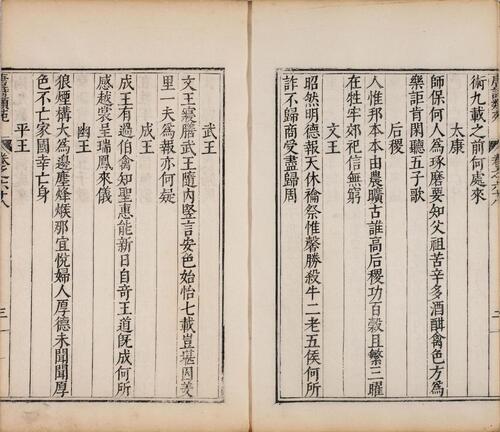 術九載之前何處來
太康
師保何人爲琢磨要知父祖苦辛多酒酣禽色方爲
樂詎肯閑聽五子歌
后稷
人惟邦本本由農曠古誰高后稷功百穀且繁三曜
在牲牢郊祀信無窮
文王
昭然明德報天休禴祭惟馨勝殺牛二老五侯何所
詐不歸商受盡歸周
武王
文王寢膳武王隨內豎言安色始怡七載豈堪因羑
里一夫爲報亦何疑
成王
成王有過伯禽知聖惠能新日自奇王道既成何所
感越裳呈瑞鳳來儀
幽王
狼煙搆大爲邊塵烽燧那宜悅婦人厚德未聞聞厚
色不亡家國幸亡身
平王
三